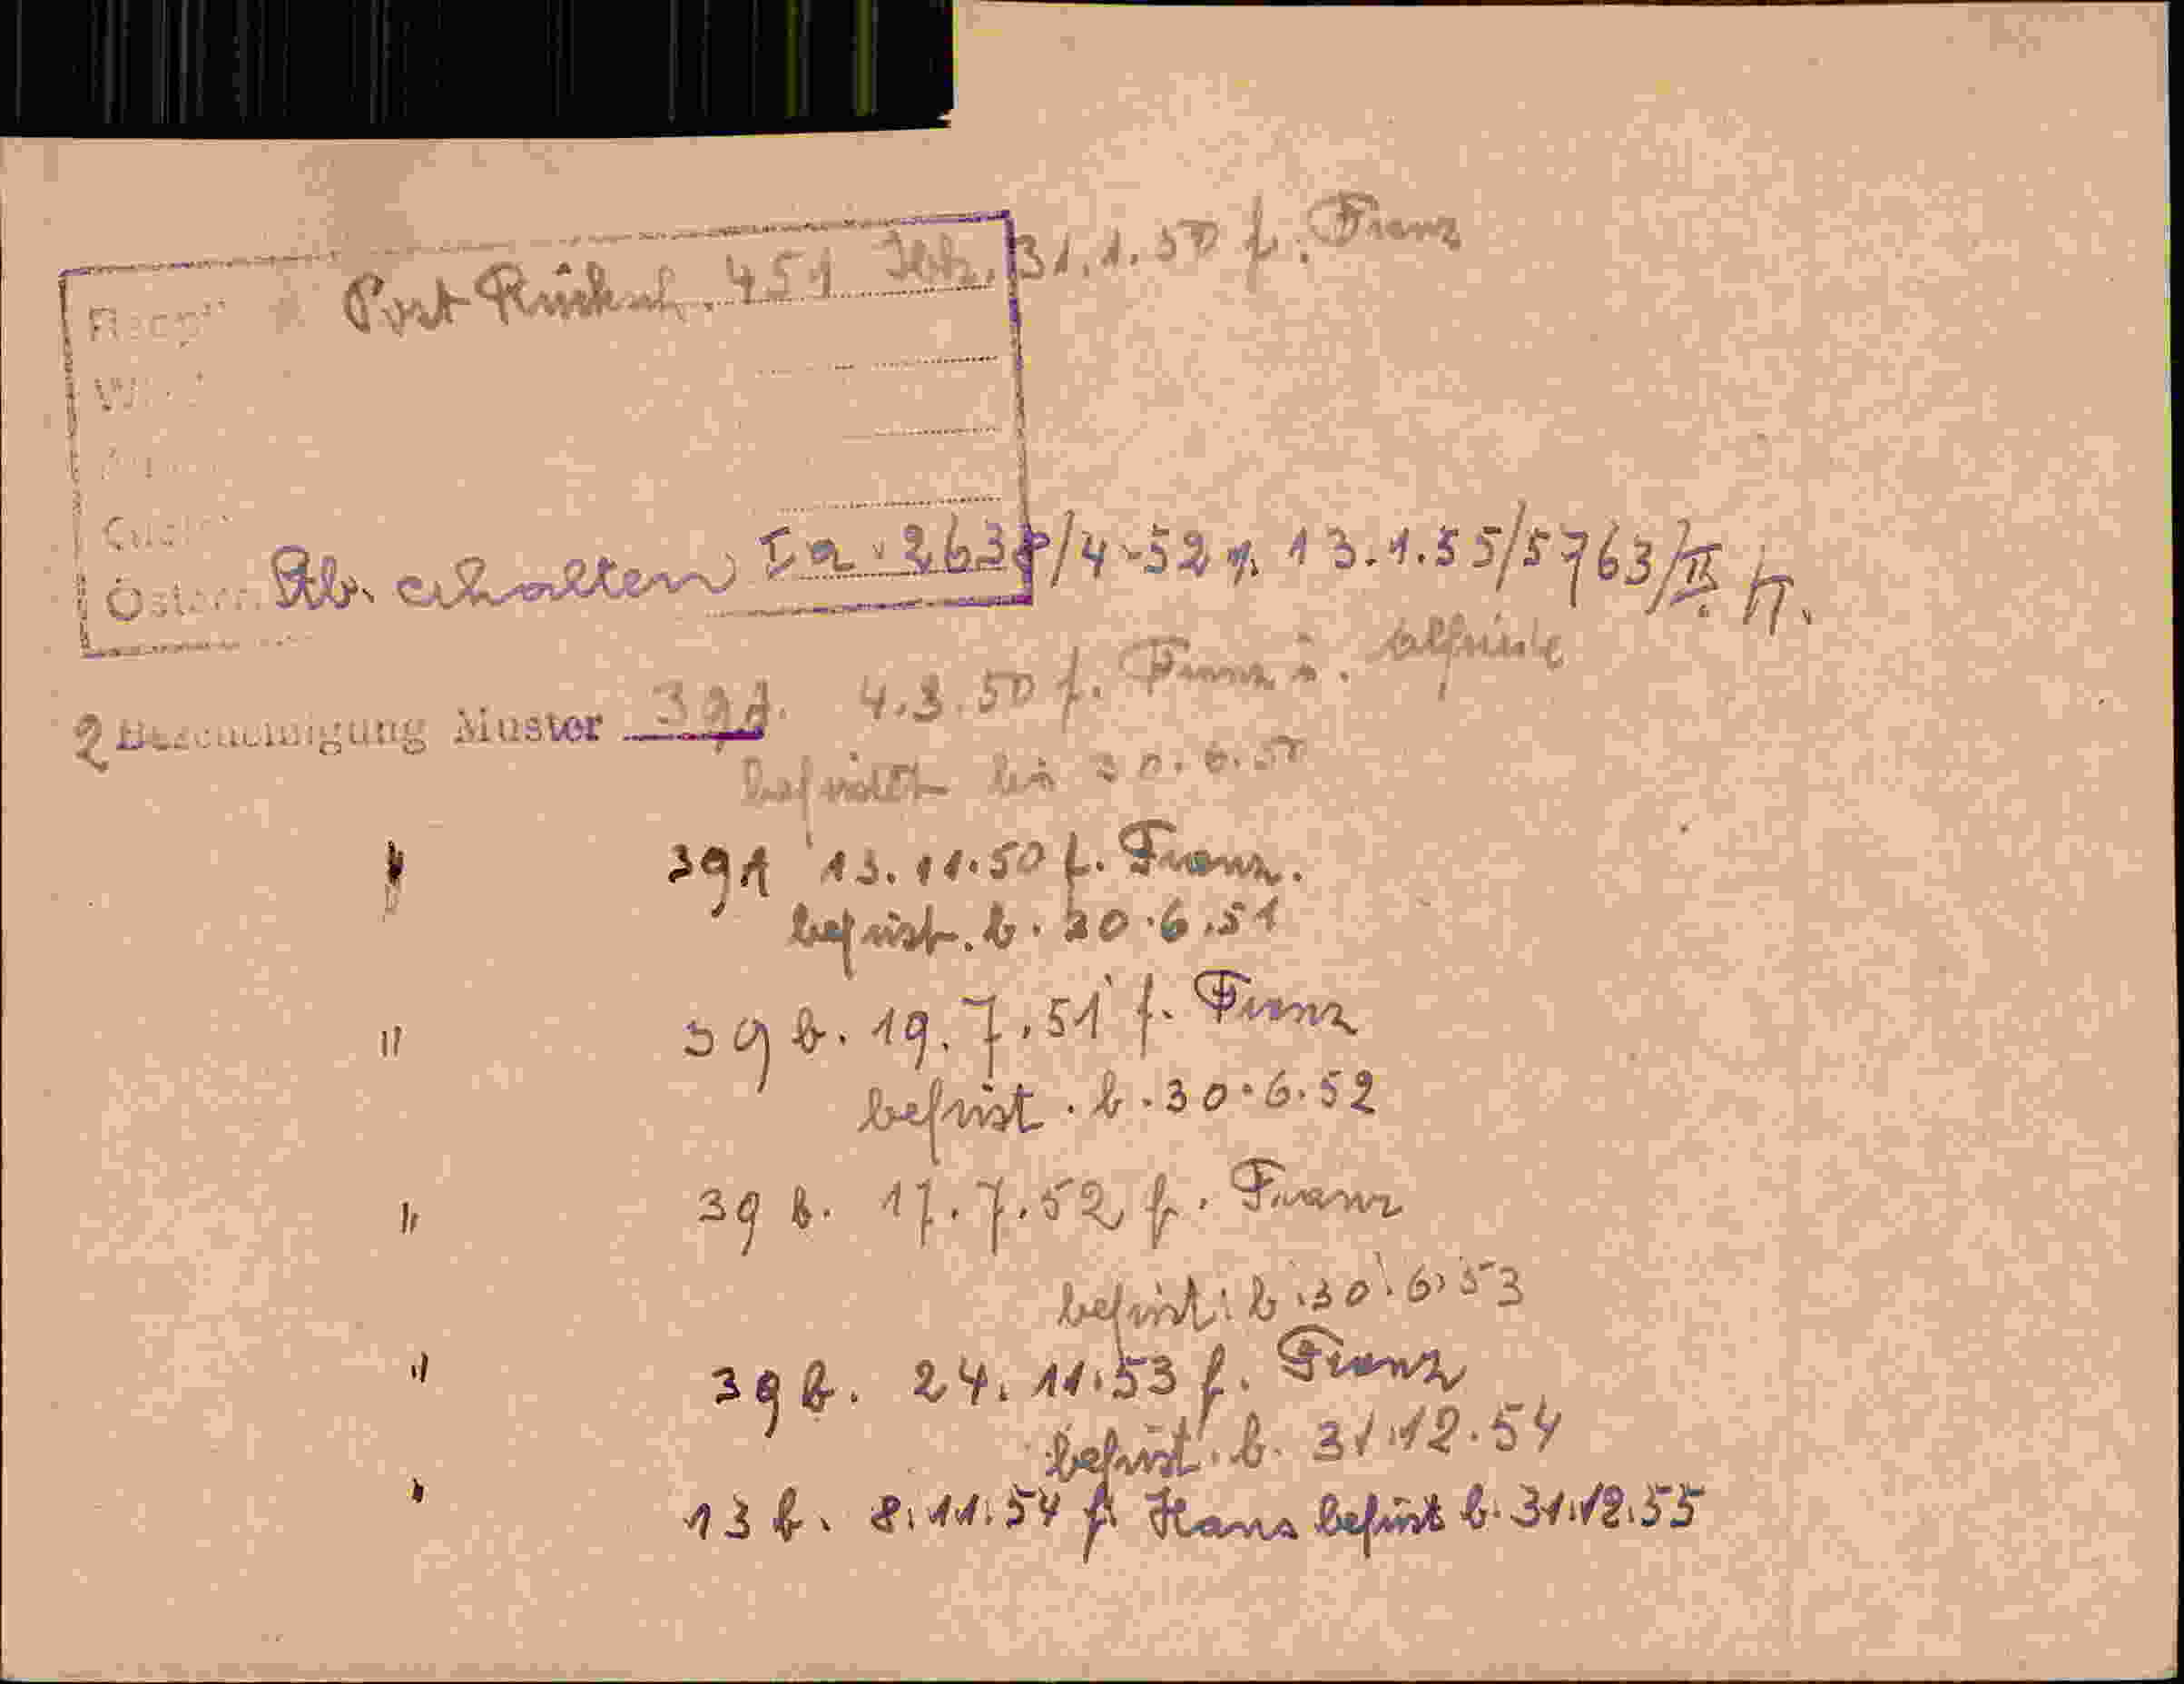 Post Rückst. 451 31.1.50 f. Franz
Stb. erhalten Ia-263 /4-52 v. 13.1.55/5763/II
2 Bescheinigung Muster 39A. 4.3.50 f. Franz u. Elfriede
befristet bis 30.6.50
39A 13.11.50 f. Franz.
befrist. b. 30.6.51
" 39 b. 19.7.51 f. Franz
befrist. b. 30.6.52
" 39 b. 17.7.52 f. Franz
befrist. b. 30.6.53
" 39 b. 24.11.53 f. Franz
befrist. b. 31.12.54
" 13 b. 8.11.54 f. Hans befrist b. 31.12.55